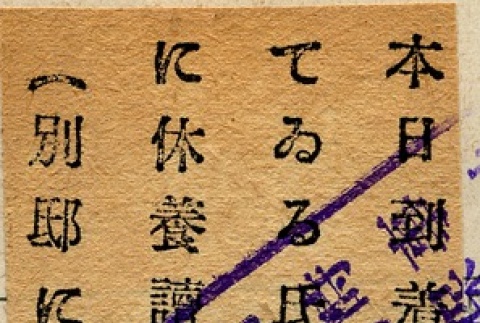 本日到着
てゐる氏
に休養讀
（別邸に